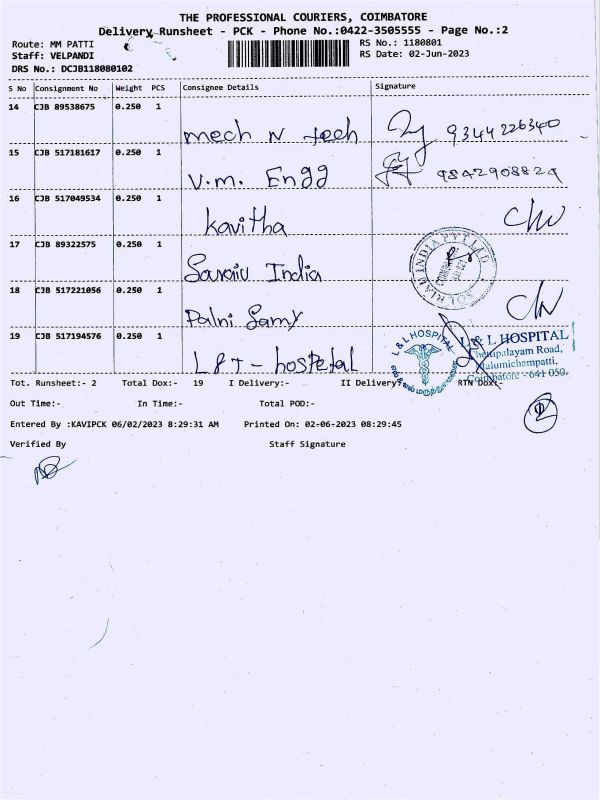 THE PROFESSIONAL COURIERS, COIMBATORE
Delivery Runsheet - PCK - Phone No.:0422-3505555 - Page No.:2
Route: MM PATTI RS No.: 1180801
Staff: VELPANDI RS Date: 02-Jun-2023
DRS No.: DCJB118080102
S No Consignment No Weight PCS Consignee Details Signature
14 CJB 89538675 0.250 1
mech N tech 9344226340
15 CJB 517181617 0.250 1
V.m. Engg 9842908829
16 CJB 517049534 0.250 1
Kavitha
17 CJB 89322575 0.250 1
India
18 CJB 517221056 0.250 1
Palni Samy
19 CJB 517194576 0.250 1
L & T - hospetal
L & L HOSPITAL
L & L HOSPITAL
Chettipalayam Road,
Malumichampatti,
Coimbatore - 641 050.
Tot. Runsheet:- 2 Total Dox:- 19 I Delivery:- II Delivery:- RTN Dox:-
Out Time:- In Time:- Total POD:-
Entered By :KAVIPCK 06/02/2023 8:29:31 AM Printed On: 02-06-2023 08:29:45
Verified By Staff Signature